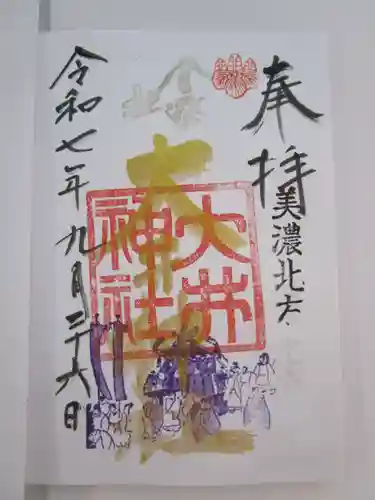 奉拝
美濃北方
大井神社
大井神社
令和七年九月二十六日